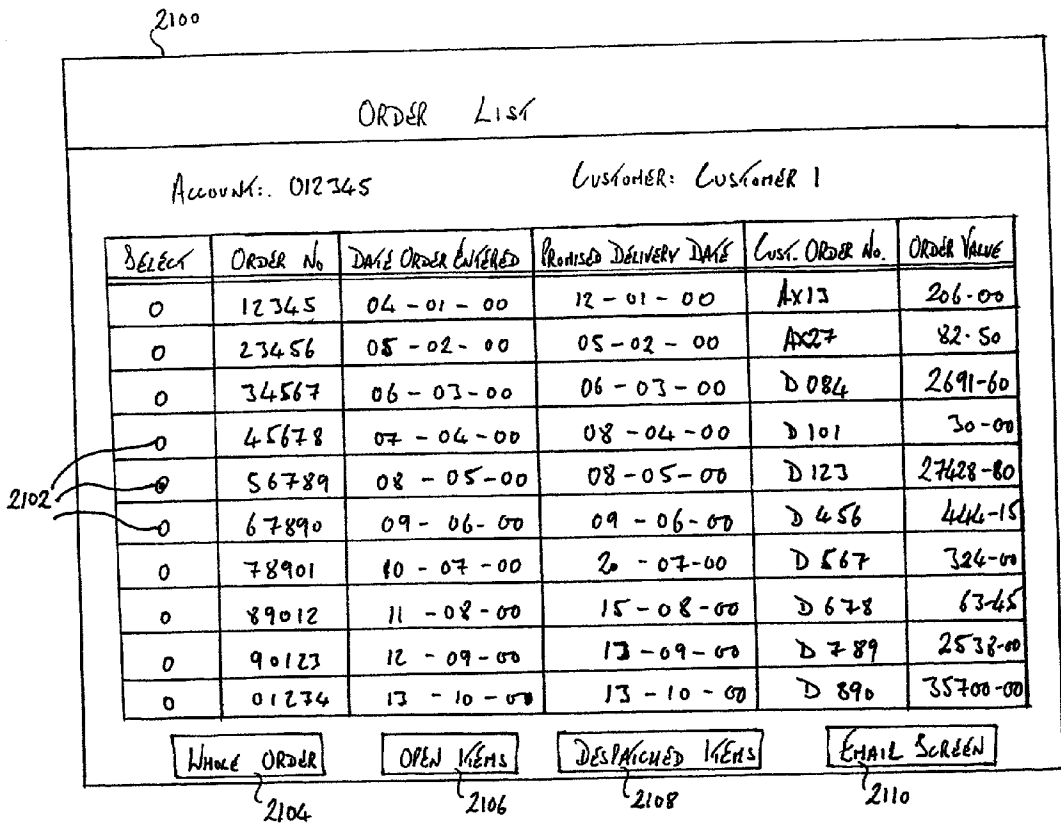 2100
ORDER LIST
ACCOUNT:. 012345 CUSTOMER: CUSTOMER 1
SELECT ORDER No DATE ORDER ENTERED PROMISED DELIVERY DATE CUST. ORDER No. ORDER VALUE
12345 04-01-00 12-01-00 AX13 206-00
23456 05-02-00 05-02-00 AX27 82.50
34567 06-03-00 06-03-00 D084 2691-60
45678 07-04-00 08-04-00 D101 30-00
2102 56789 08-05-00 08-05-00 D123 27428-80
67890 09-06-00 09-06-00 D456 444-15
78901 10-07-00 20-07-00 D567 324-00
89012 11-08-00 15-08-00 D678 63-45
90123 12-09-00 13-09-00 D789 2538-00
01234 13-10-00 13-10-00 D890 35700-00
WHOLE ORDER OPEN ITEMS DESPATCHED ITEMS EMAIL SCREEN
2104 2106 2108 2110